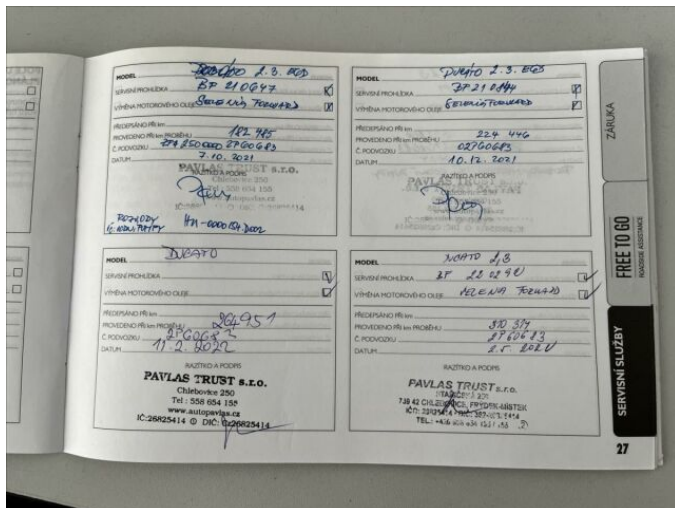 MODEL Ducato 2.3. EGD
SERVISNÍ PROHLÍDKA BP 210647
VÝMĚNA MOTOROVÉHO OLEJE Selenia Forward
PŘEDEPSÁNO PŘI km
PROVEDENO PŘI km PROBĚHU 182 485
Č. PODVOZKU ZFA 250000 2PG0683
DATUM 7.10.2021
RAZÍTKO A PODPIS
PAVLAS TRUST s.r.o.
Chlebovice 250
Tel : 558 654 155
www.autopavlas.cz
ROZVODY
MODEL Ducato 2.3. EGD
SERVISNÍ PROHLÍDKA BP 210844
VÝMĚNA MOTOROVÉHO OLEJE Selenia Forward
PŘEDEPSÁNO PŘI km
PROVEDENO PŘI km PROBĚHU 224 446
Č. PODVOZKU 02PG0683
DATUM 10.12.2021
RAZÍTKO A PODPIS
PAVLAS TRUST s.r.o.
MODEL DUCATO
SERVISNÍ PROHLÍDKA
VÝMĚNA MOTOROVÉHO OLEJE
PŘEDEPSÁNO PŘI km
PROVEDENO PŘI km PROBĚHU 264951
Č. PODVOZKU 2PG0683
DATUM 11.2.2022
RAZÍTKO A PODPIS
PAVLAS TRUST s.r.o.
Chlebovice 250
Tel : 558 654 155
www.autopavlas.cz
IČ:26825414 DIČ: Cz26825414
MODEL DUCATO 2,3
SERVISNÍ PROHLÍDKA BP 220290
VÝMĚNA MOTOROVÉHO OLEJE SELENIA FORWARD
PŘEDEPSÁNO PŘI km
PROVEDENO PŘI km PROBĚHU
Č. PODVOZKU 2PG0683
DATUM
RAZÍTKO A PODPIS
PAVLAS TRUST s.r.o.
739 42 CHLEBOVICE, FRÝDEK-MÍSTEK
ZÁRUKA
FREE TO GO
ROADSIDE ASSISTANCE
SERVISNÍ SLUŽBY
27